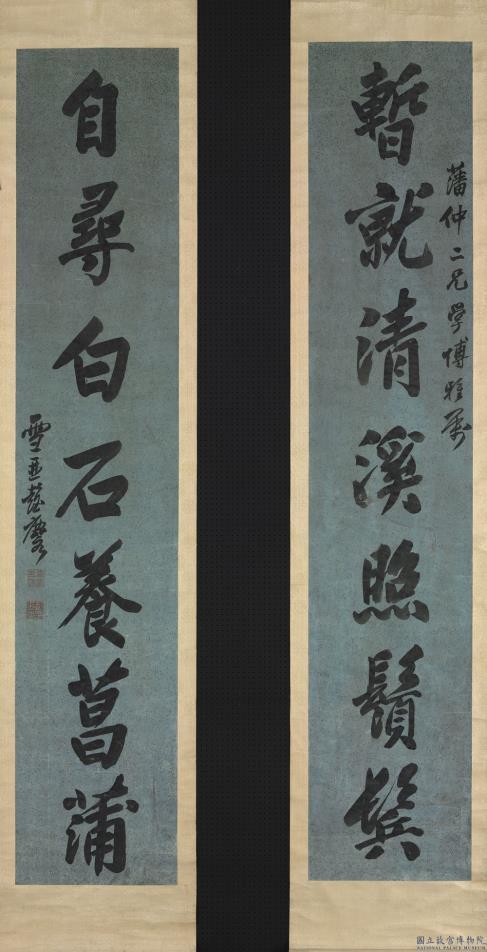 藩仲二兄学博雅屬
暫就清溪照鬚鬢
自尋白石養菖蒲
國立故宮博物院
NATIONAL PALACE MUSEUM